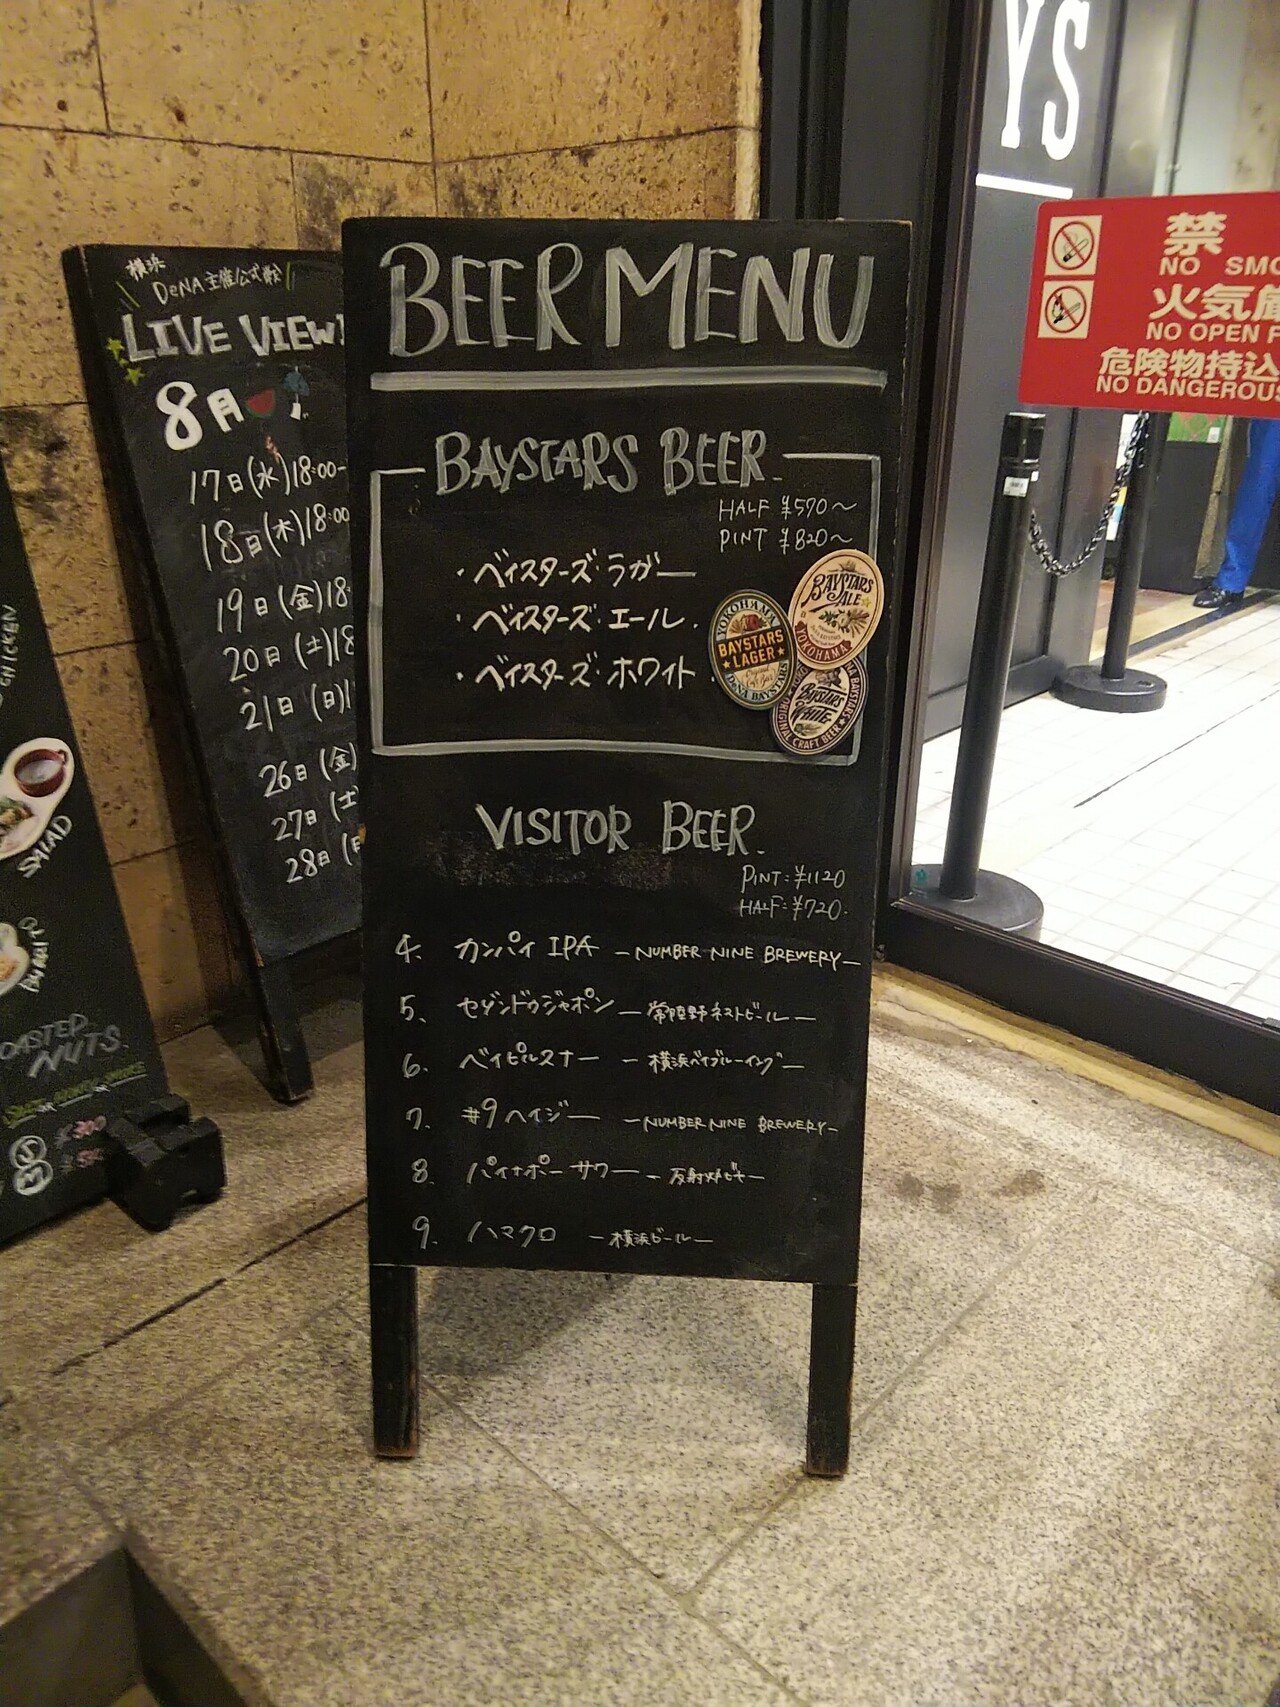 BEER MENU
BAYSTARS BEER
HALF ¥570〜
PINT ¥820〜
・ベイスターズ・ラガー
・ベイスターズ・エール
・ベイスターズ・ホワイト
YOKOHAMA
BAYSTARS
LAGER
DeNA BAYSTARS
BAYSTARS
ALE
YOKOHAMA
BAYSTARS
WHITE
ORIGINAL CRAFT BEER
VISITOR BEER
PINT:¥1120
HALF:¥720.
4. カンパイ IPA -NUMBER NINE BREWERY-
5、 セゾンドゥジャポン -常陸野ネストビール-
6、 ベイピルスナー -横浜ベイブルーイング-
7、 #9ヘイジー -NUMBER NINE BREWERY-
8、 パイナポーサワー -反射炉ビヤ-
9、 ハマクロ -横浜ビール-
横浜
DeNA主催公式戦
LIVE VIEW
8月
17日(水)18:00-
18日(木)18:00
19日(金)18:
20日(土)18
21日(日)1
26日(金)
27日(土)
28日(日
CHICKEN
SALAD
NUTS
YS
禁
NO SMO
火気厳
NO OPEN F
危険物持込
NO DANGEROUS